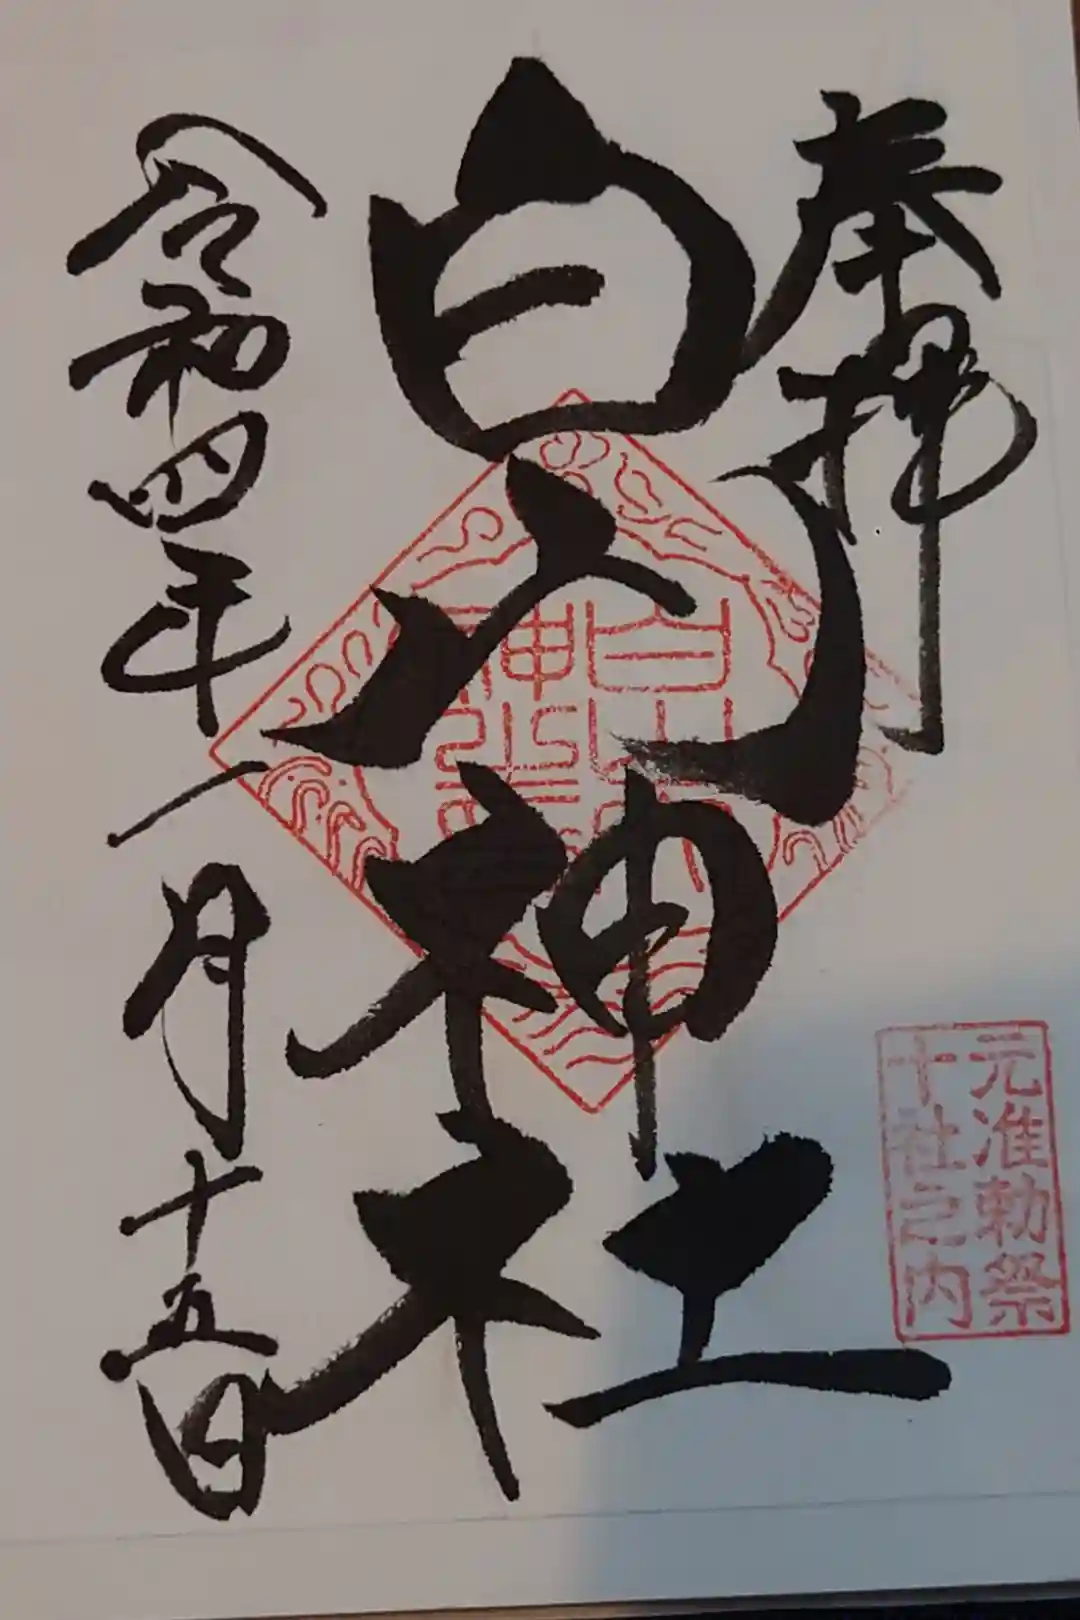 奉拝
元准勅祭
十社之内
白山神社
令和四年一月十五日